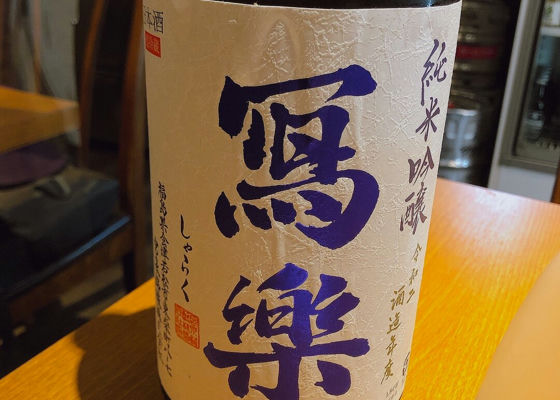 純米吟醸
令和二
酒造年度
寫樂
しゃらく
本酒